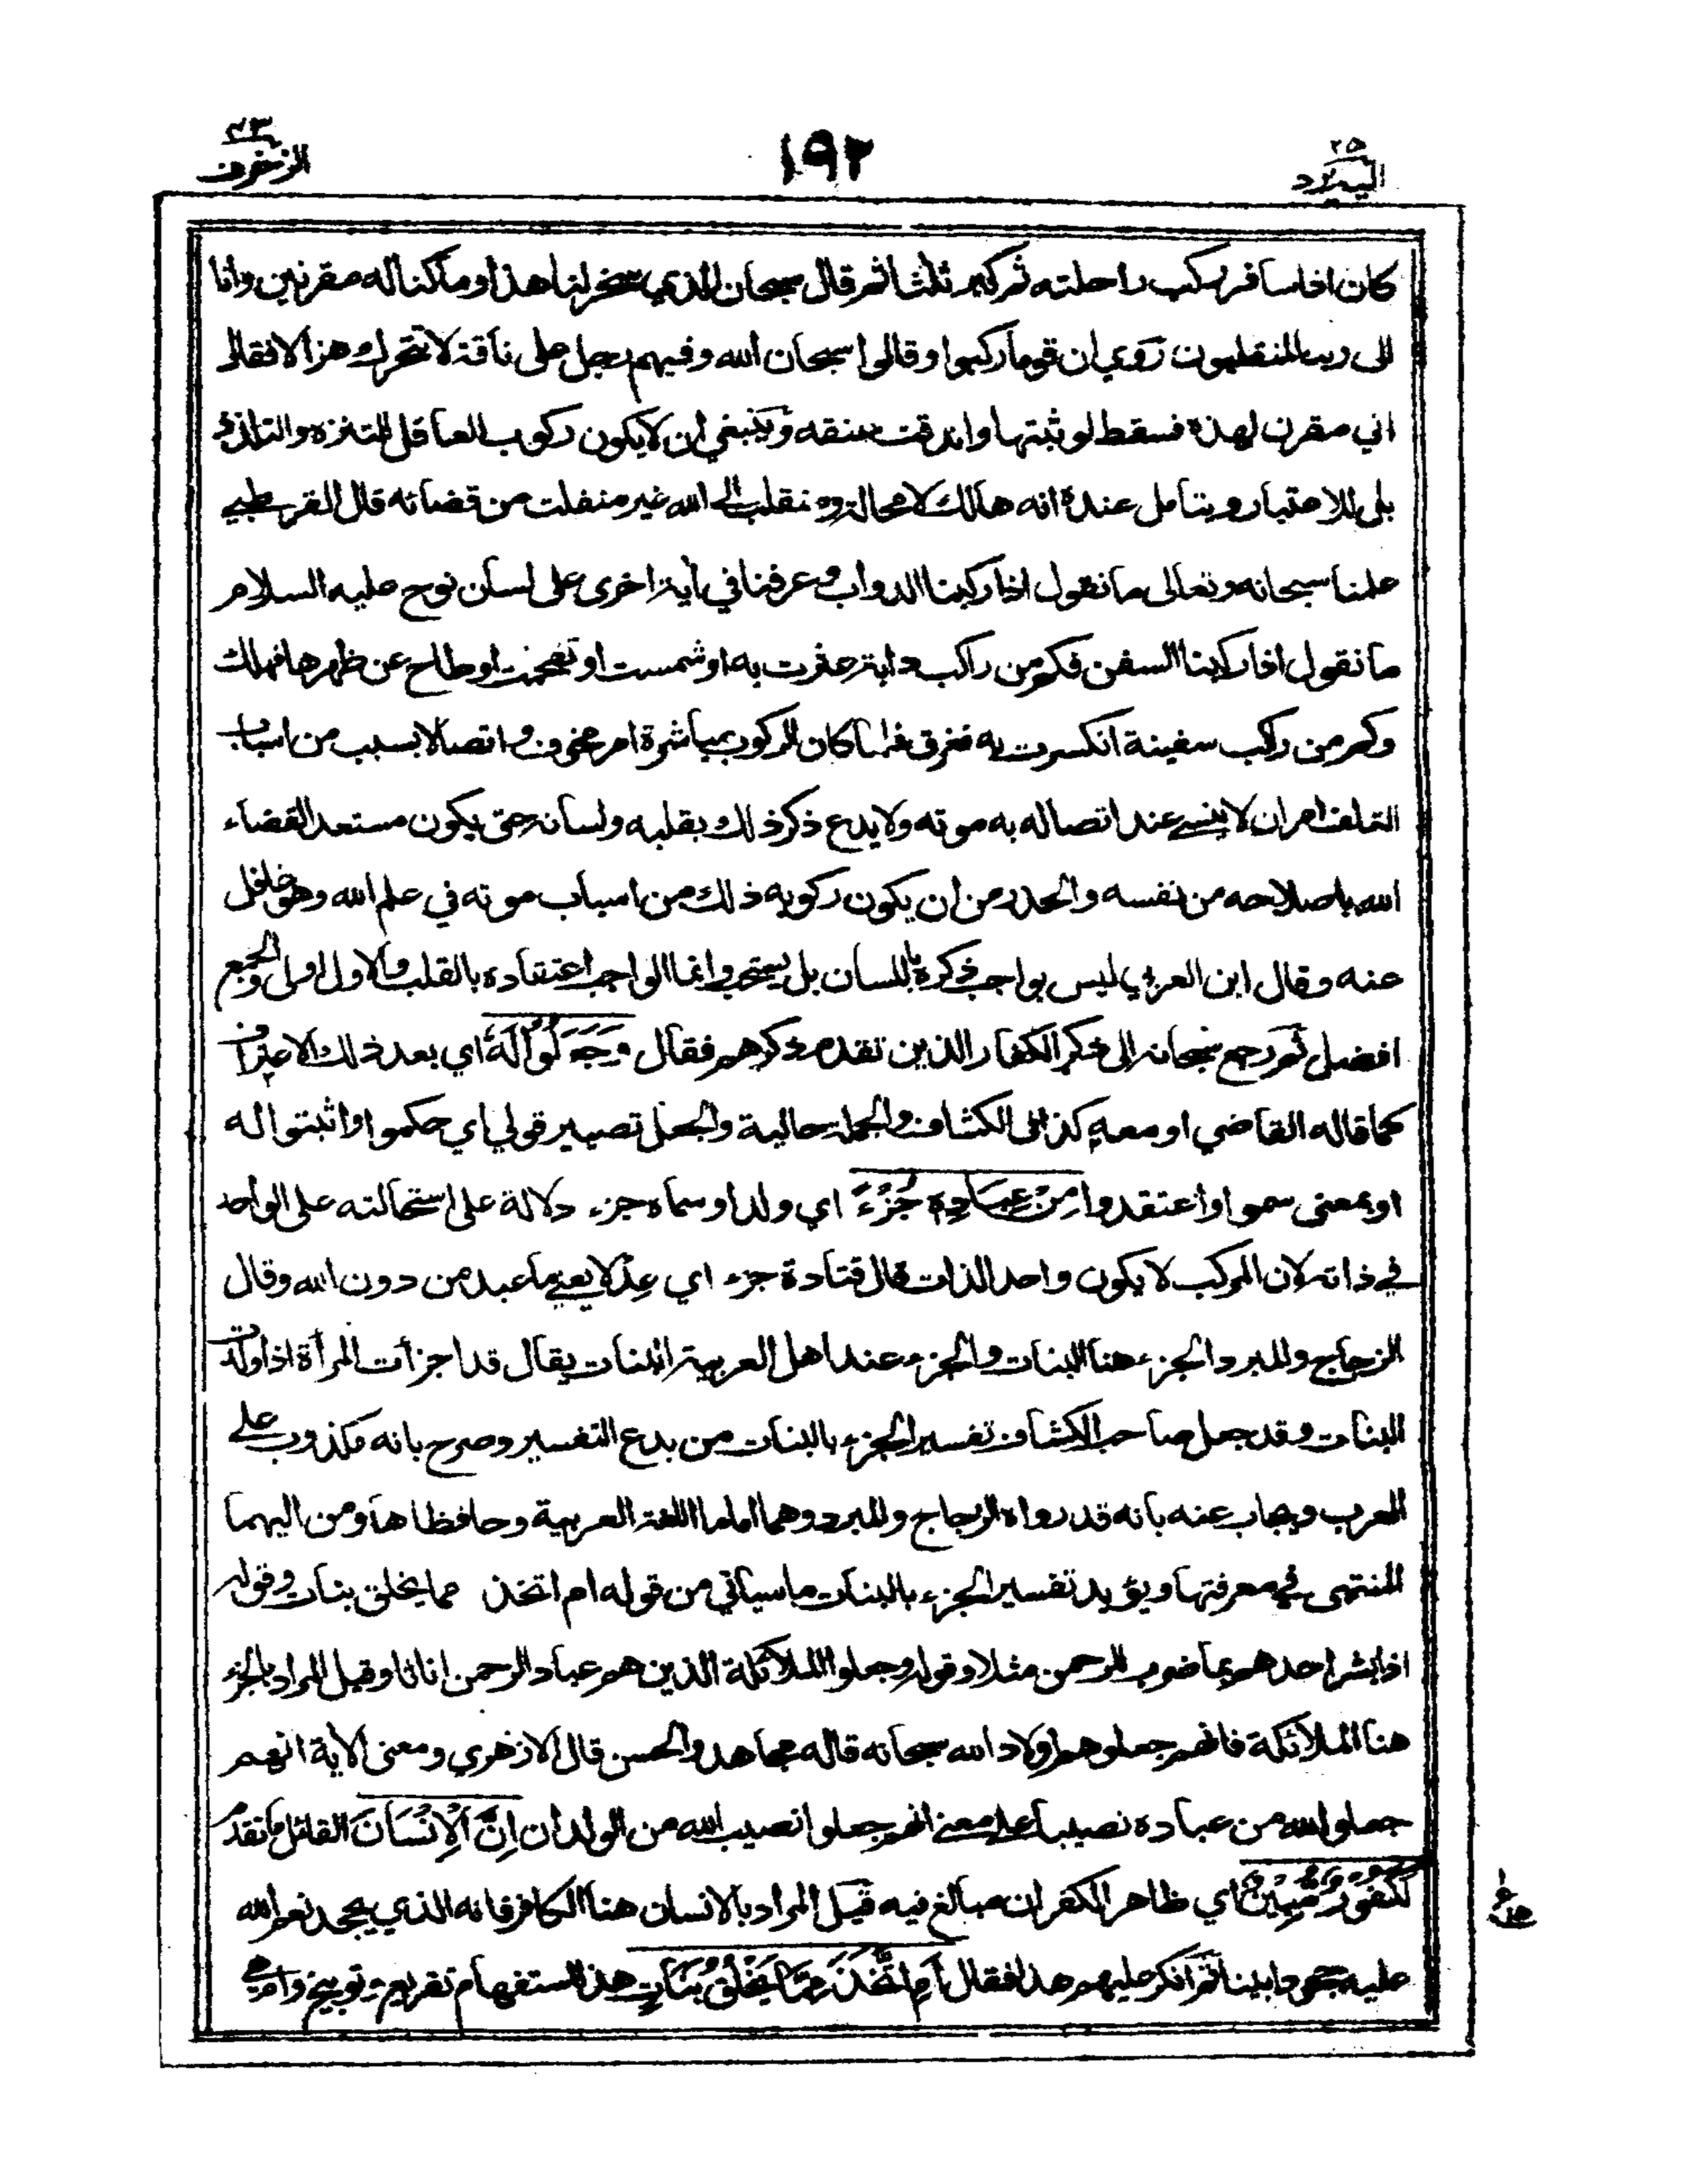 ٢٥
اليه يرد
١٩٢
٤٣
الزخرف
كان اذا سافر ركب راحلته ثم كبر ثلثا ثم قال سبحان الذي سخر لنا هذا وما كنا له مقرنين وانا
الى ربنا لمنقلبون روي ان قوما ركبوا وقالوا سبحان الله وفيهم رجل على ناقة لا تتحرك هزالا فقال
اني مقرن لهذه فسقط لوثبتها واندقت عنقه وينبغي ان لا يكون ركوب العاقل للتنزه والتلذذ
بل للاعتبار ويتأمل عنده انه هالك لا محالة ومنقلب الى الله غير منفلت من قضائه قال القرطبي
علمنا سبحانه وتعالى ما نقول اذا ركبنا الدواب وعرفنا في أية اخرى على لسان نوح عليه السلام
ما نقول اذا ركبنا السفن فكم من راكب دابة عثرت به او شمست او تقحمت او طاح عن ظهرها فهلك
وكم من راكب سفينة انكسرت به فغرق فلما كان الركوب مباشرة امر مخوف واتصالا بسبب من اسباب
التلف امر ان لا ينسى عند اتصاله به موته ولا يدع ذكر ذلك بقلبه ولسانه حتى يكون مستعدا لقضاء
الله باصلاحه من نفسه والحذر من ان يكون ركوبه ذلك من اسباب موته في علم الله وهو غافل
عنه وقال ابن العربي ليس بواجب ذكره باللسان بل يستحب وانما الواجب اعتقاده بالقلب والاول اولى والجمع
افضل ثم رجع سبحانه الى ذكر الكفار الذين تقدم ذكرهم فقال وَجَعَلُوْا لَهٗ اي بعد ذلك الاعتراف
كما قاله القاضي او معه كذا في الكشاف والجملة حالية والجعل تصيير قولي اي حكموا واثبتوا له
او بمعنى سموا واعتقدوا مِنْ عِبَادِهٖ جُزْءً اي ولدا وسماه جزء دلالة على استحالته على الواحد
في ذاته لان المركب لا يكون واحد الذات قال قتادة جزء اي عِدْلا يعني ما عبد من دون الله وقال
الزجاج والمبرد الجزء هنا البنات والجزء عند اهل العربية البنات يقال قد اجزأت المرأة اذا ولدت
البنات وقد جعل صاحب الكشاف تفسير الجزء بالبنات من بدع التفسير وصرح بانه مكذوب على
العرب ويجاب عنه بانه قد رواه الزجاج والمبرد وهما اماما اللغة العربية وحافظاها ومن اليهما
المنتهى في معرفتها ويؤيد تفسير الجزء بالبنات ما سيأتي من قوله ام اتخذ مما يخلق بنات وقوله
اذا بشر احدهم بما ضرب للرحمن مثلا وقوله وجعلوا الملائكة الذين هم عباد الرحمن اناثا وقيل المراد بالجزء
هنا الملائكة فانهم جعلوهم اولاد الله سبحانه قاله مجاهد والحسن قال الازهري ومعنى الاية انهم
جعلوا لله من عباده نصيبا على معنى انهم جعلوا نصيب الله من الولدان اِنَّ الْاِنْسَانَ القائل ما تقدم
لَكَفُوْرٌ مُّبِيْنٌ اي ظاهر الكفران مبالغ فيه قيل المراد بالانسان هنا الكافر فانه الذي يجحد نعم الله
عليه جحودا بينا ثم انكر عليهم هذا فقال اَمِ اتَّخَذَ مِمَّا يَخْلُقُ بَنَاتٍ هذا استفهام تقريع وتوبيخ وام هي